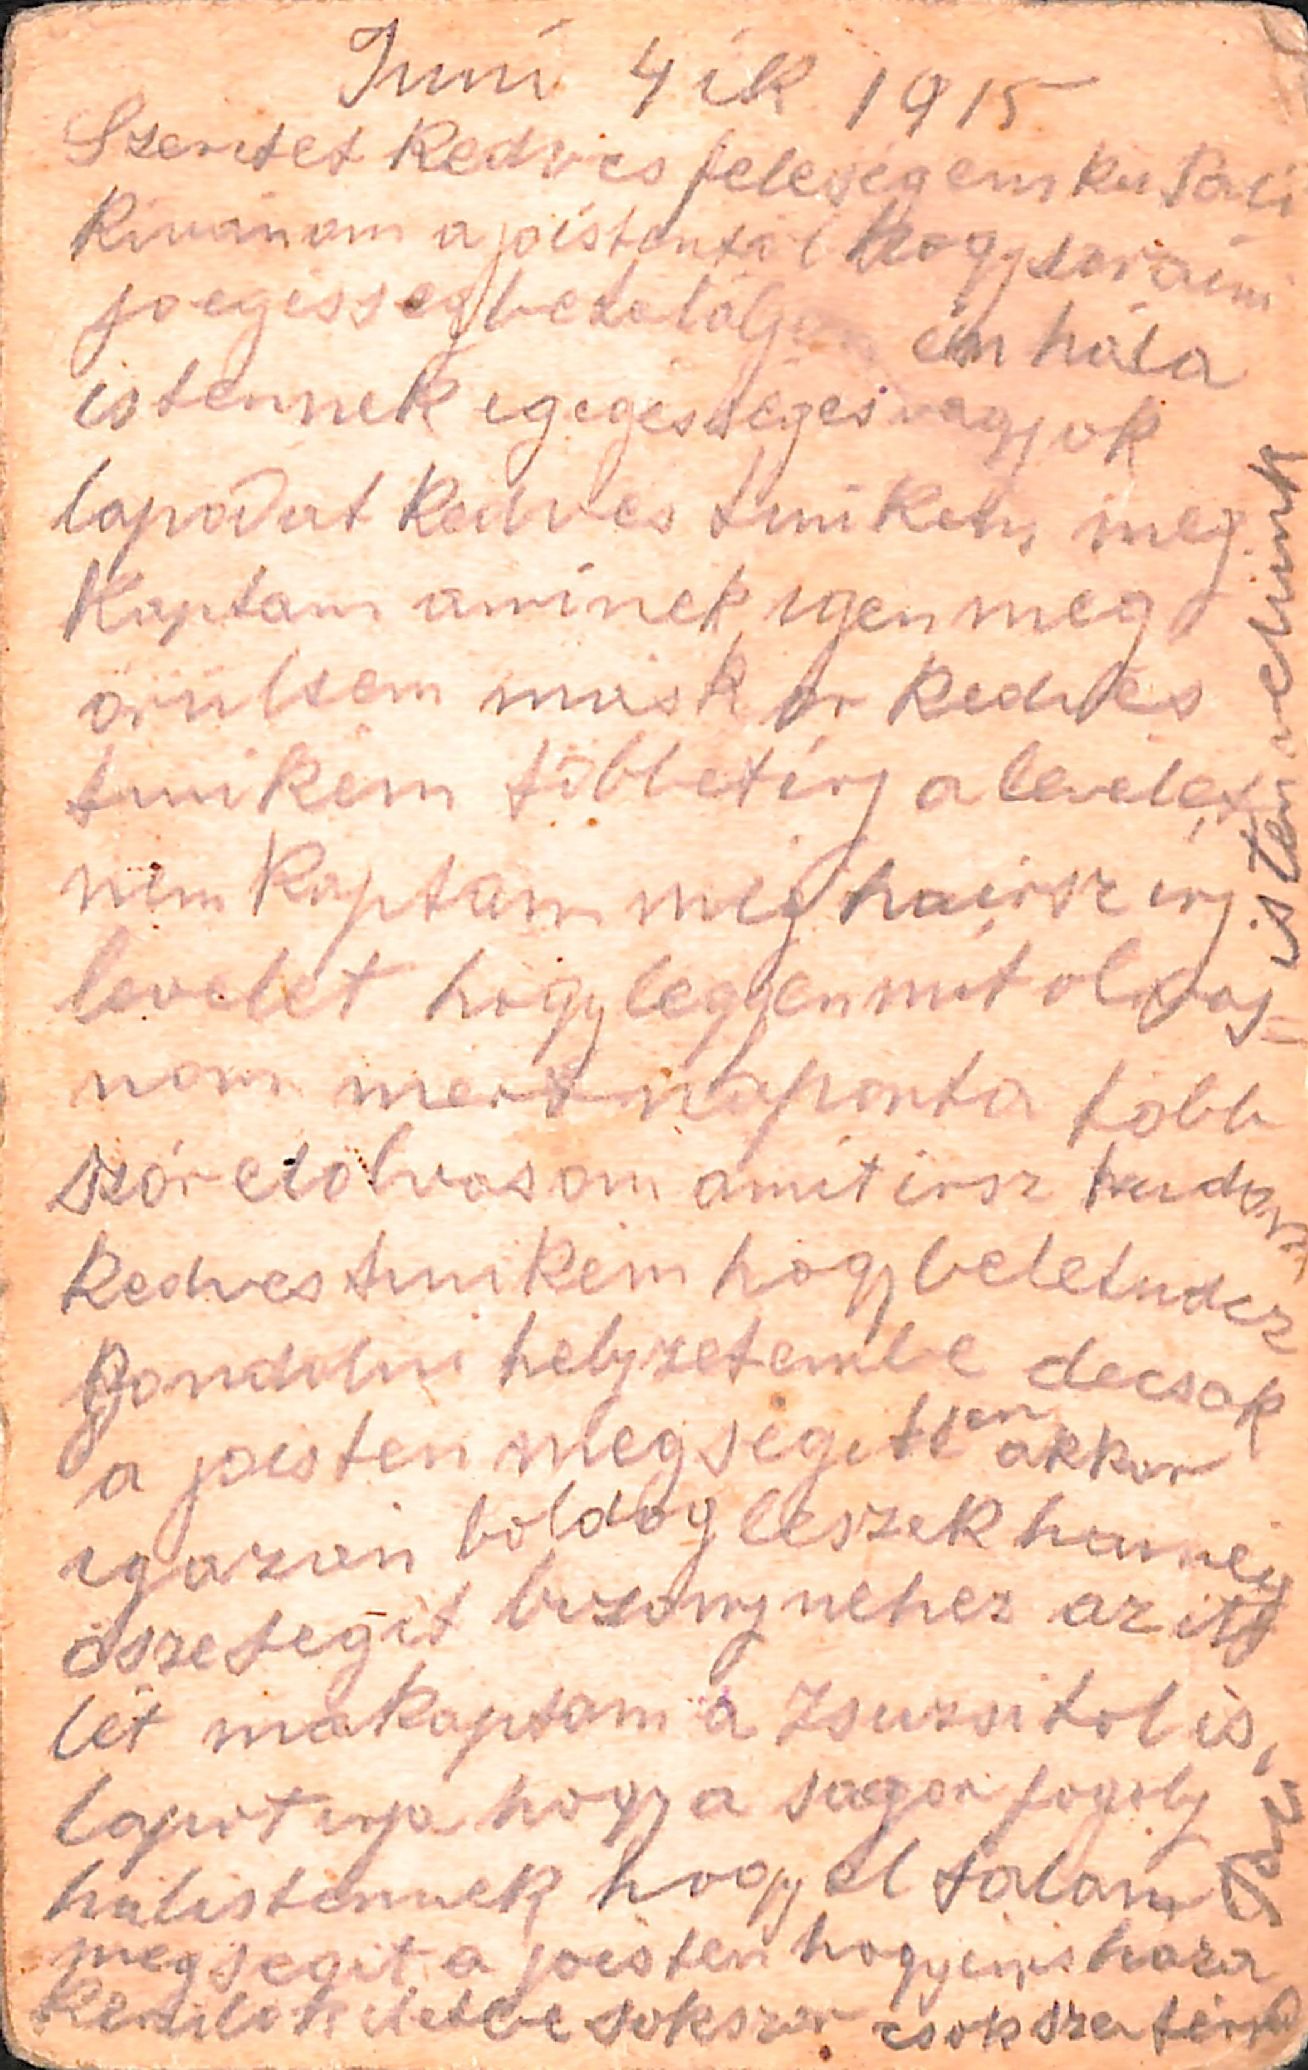 Juni 4 ik 1915
Szeretet Kedves feleségem
Kivánom a joistentöl hogy soraim
jo egésségbe találjon én hála
istennek egégeséges vagyok
lapodat Kedves tunikém meg
Kaptam aminek igen meg
örültem máskor Kedves
tunikém többet irj a levelet
nem Kaptam még ha irsz irj
levelet hogy legyen mit olvas
nom mert naponta több
ször elolvasom amit irsz tudom
Kedves tunikém hogy beletudsz
gondolni helyzetembe de csak
a joisten megsegitsen akkor
igazán boldog leszek ha meg
öszesegit bizony nehéz az itt
lét ma kaptam a Zsuzsitol is
lapot irja hogy a sógor fogoly
hálistennek hogy él talám
megsegit a joisten hogy én is haza
Kerülök életbe sokszor csokszer
isten velünk